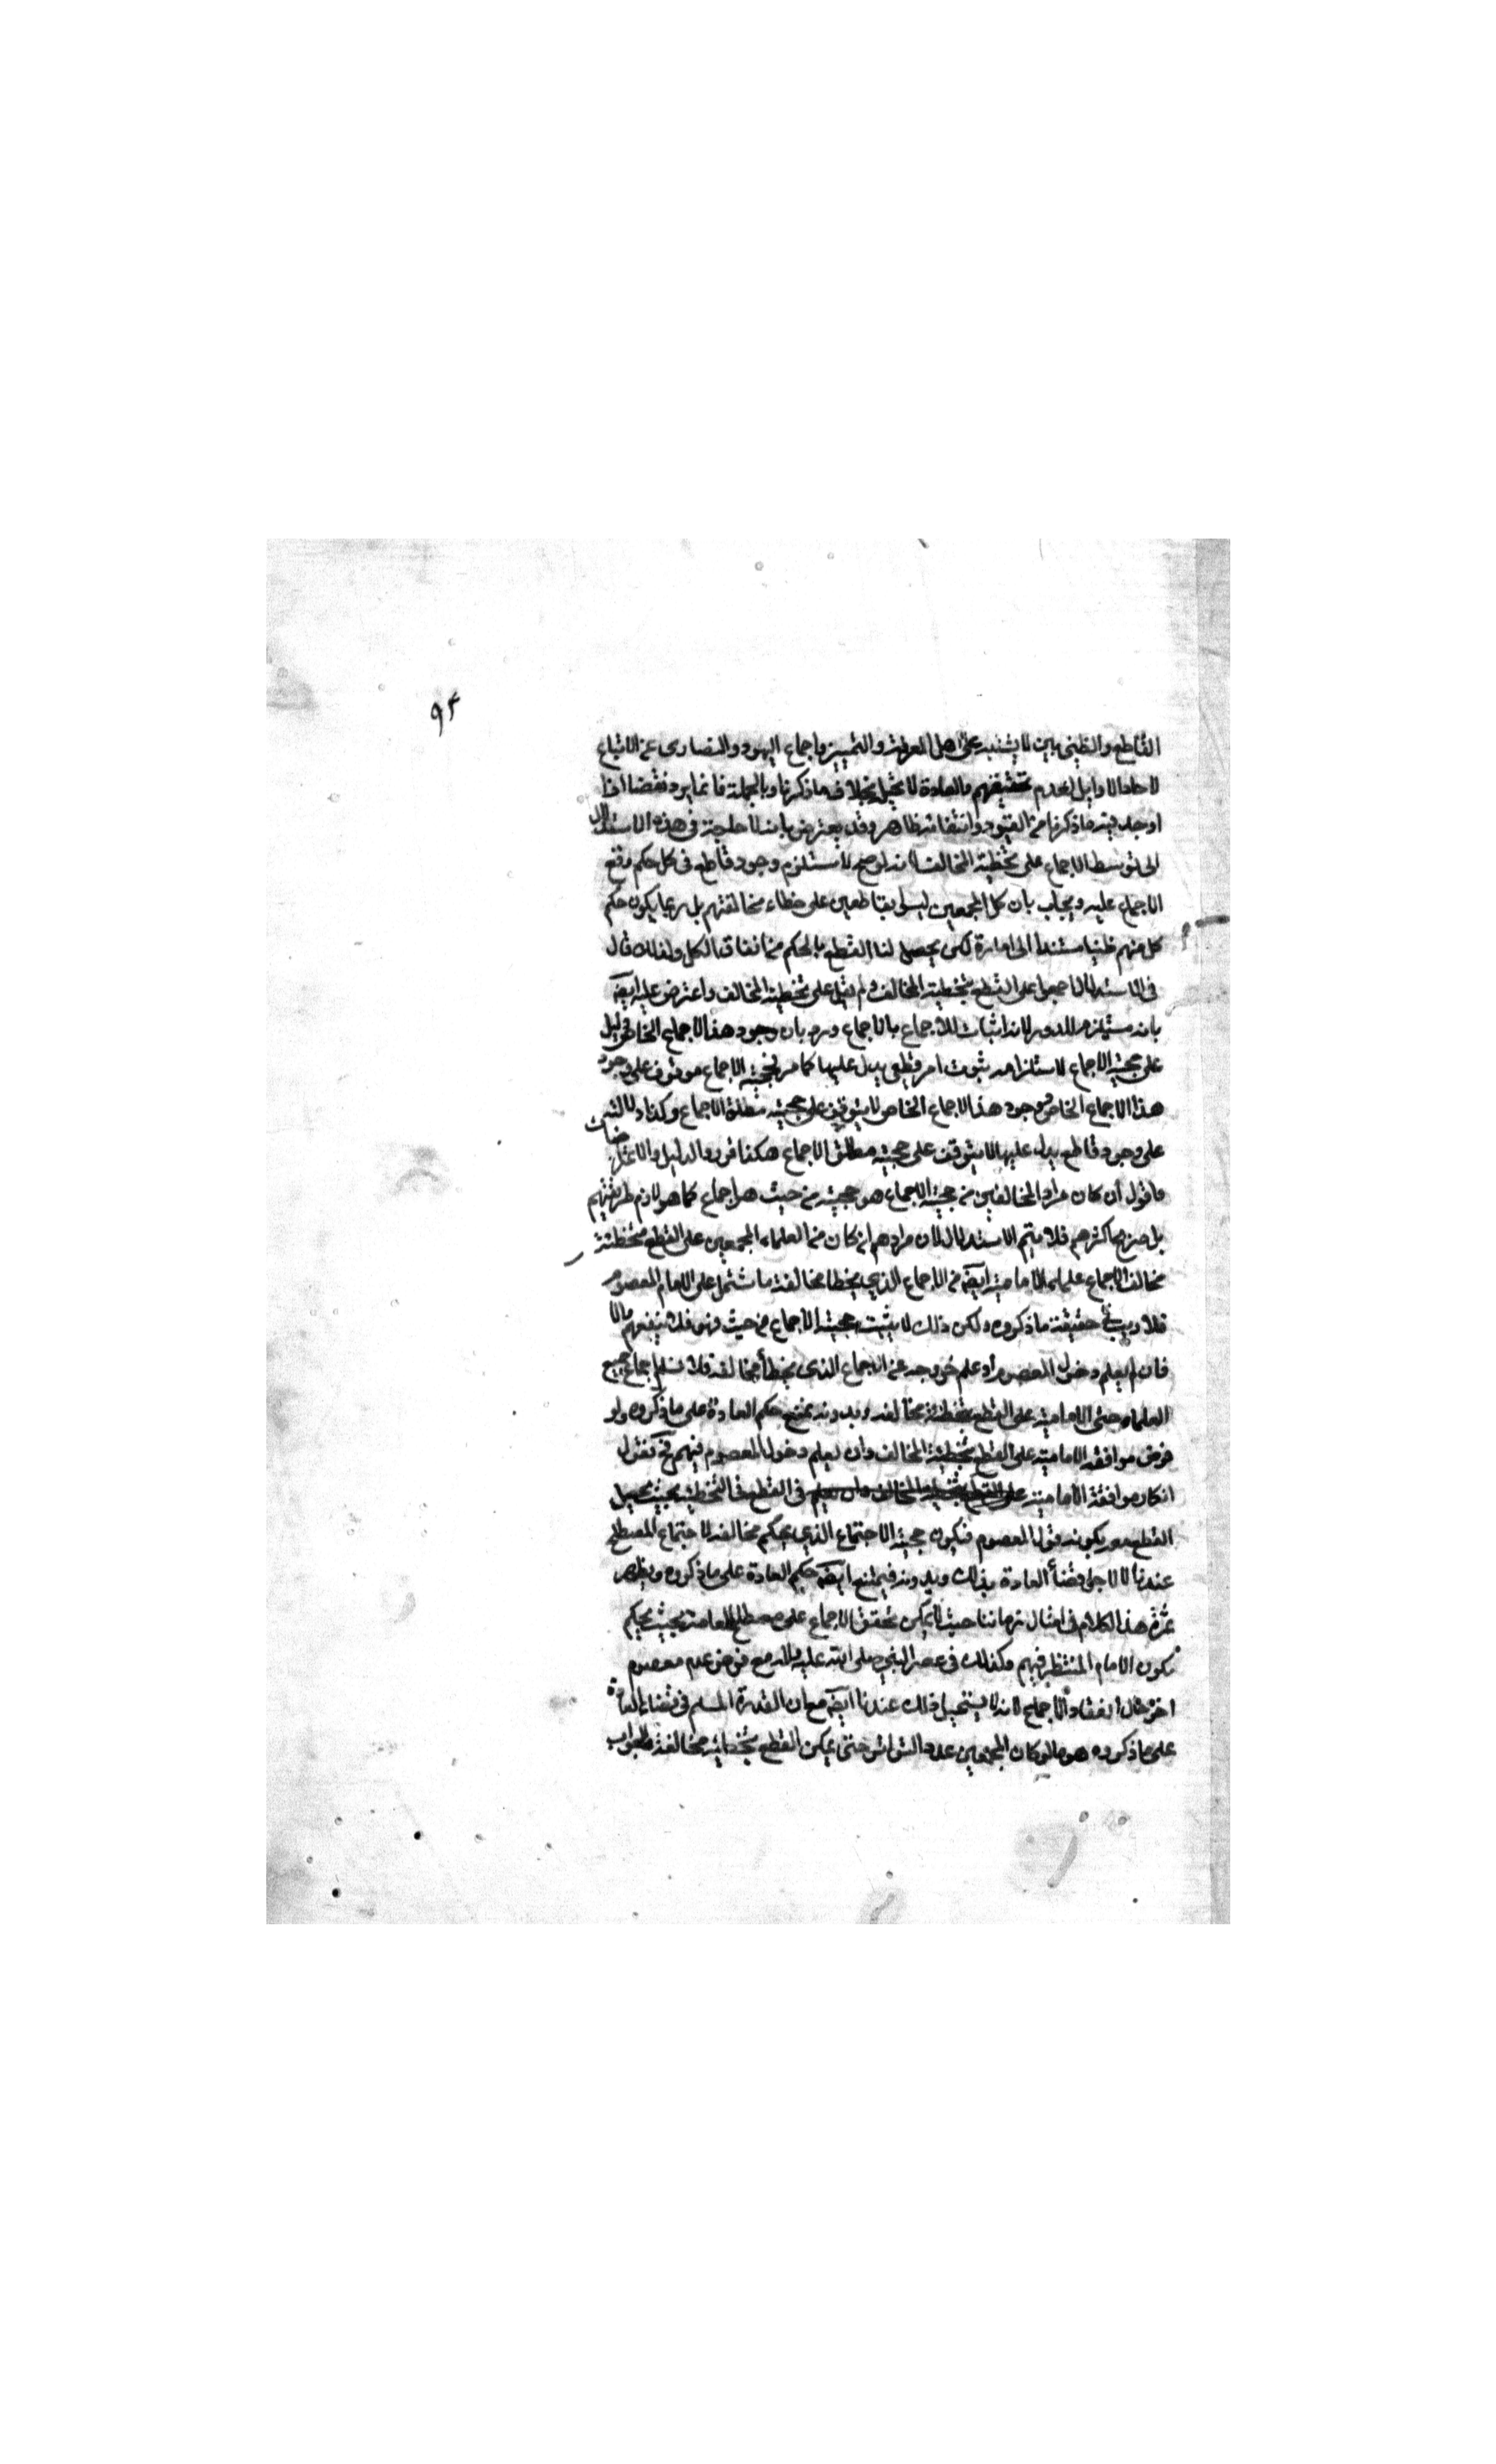 ٩٤
القاطع والظني بين لا يشتبه على اهل المعرفة والتمييز واجماع اليهود والنصارى عن الاتباع
لاحاد الاوايل لعدم تحقيقهم والعادة لا تحيله بخلاف ما ذكرنا وبالجملة فانما يرد نقضا اذا
اوجد فيه ما ذكرنا من القيود وانتفائه ظاهر وقد يعترض بانه لا حاجة في هذه الاستدلال
الى توسط الاجماع على تخطية المخالف لانه لو صح لاستلزم وجود قاطع في كل حكم وقع
الاجماع عليه ويجاب بان كل المجمعين ليسوا بقاطعين على خطاء مخالفتهم بل ربما يكون حكم
كل منهم ظنيا مستندا الى امارة لكن يحصل لنا القطع بالحكم من اتفاق الكل ولذلك قال
في الاستدلال اجمعوا على القطع بتخطية المخالف ولم يقل على تخطية المخالف واعترض عليه ايضا
بانه مستلزم للدور لانه اثبات للاجماع بالاجماع ورد بان وجود هذا الاجماع الخاص دليل
على حجية الاجماع لاستلزامه ثبوت امر قطعي يدل عليها كما مر فحجية الاجماع موقوف على وجود
هذا الاجماع الخاص ووجود هذا الاجماع الخاص لا يتوقف على حجية مطلق الاجماع وكذا دلالته
على وجود قاطع يدل عليها لا يتوقف على حجية مطلق الاجماع هكذا قرروا الدليل والاعتراضات
واقول ان كان مراد المخالفين من حجية الاجماع هو حجيته من حيث هو اجماع كما هو لازم طريقتهم
بل صرح به اكثرهم فلا يتم الاستدلال لان مرادهم ان كان من العلماء المجمعين على القطع بتخطئة
مخالف الاجماع علماء الامامية ايضا من الاجماع الذي يخطا مخالفه ما شتمل على الامام المعصوم
فلا ريب في حقيقة ما ذكروه ولكن ذلك لا يثبت حجية الاجماع من حيث هو فلا ينفعهم والا
فان لم يعلم دخول المعصوم او علم خروجه عن الاجماع الذي يخطأ مخالفه فلا نسلم اجماع جميع
العلماء حتى الامامية على القطع بتخطئة مخالفه وبدونه نمنع حكم العادة على ما ذكروه ولو
فرض موافقة الامامية على القطع بتخطئة المخالف وان لم يعلم دخول المعصوم فيهم فح نقول
انكار موافقة الامامية في القطع في التخطئة بحيث يحصل
القطع بكونه قول المعصوم فيكون حجية الاجتماع الذي يحكم مخالفه لاجتماع المصطلح
عندنا لا لاجل قضاء العادة بذلك وبدونه فيمنع ايضا حكم العادة على ما ذكروه ويظهر
ثمرة هذا الكلام في امثال زماننا حيث لا يمكن تحقق الاجماع على مصطلح العامة بحيث يحكم
بكون الامام المنتظر فيهم وكذلك في عصر النبي صلى الله عليه واله مع فرض عدم معصوم
اخر حال انعقاد الاجماع لانه لا يستحيل ذلك عندنا ايضا مع ان القدر المسلم في قضاء العادة
على ما ذكروه هو ما لو كان المجمعين عدد التواتر حتى يمكن القطع بتخطئة مخالفه والجواب